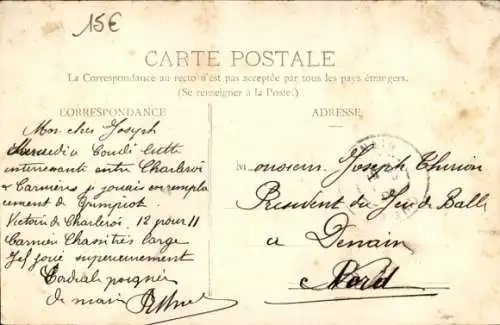 15€
CARTE POSTALE
La Correspondance au recto n'est pas acceptée par tous les pays étrangers.
(Se renseigner à la Poste.)
CORRESPONDANCE
Mon cher Joseph
à Condé lutte
intéressante entre Charleroi
& Carnières je jouais en rempla
cement de Grimpiot.
Victoire de Charleroi. 12 pour 11
Carnières Chassitrès large
Jef joué supérieurement
Cordiale poignée
de main
ADRESSE
Monsieur Joseph Thirion
Président du Jeu de Balle
à Denain
Nord